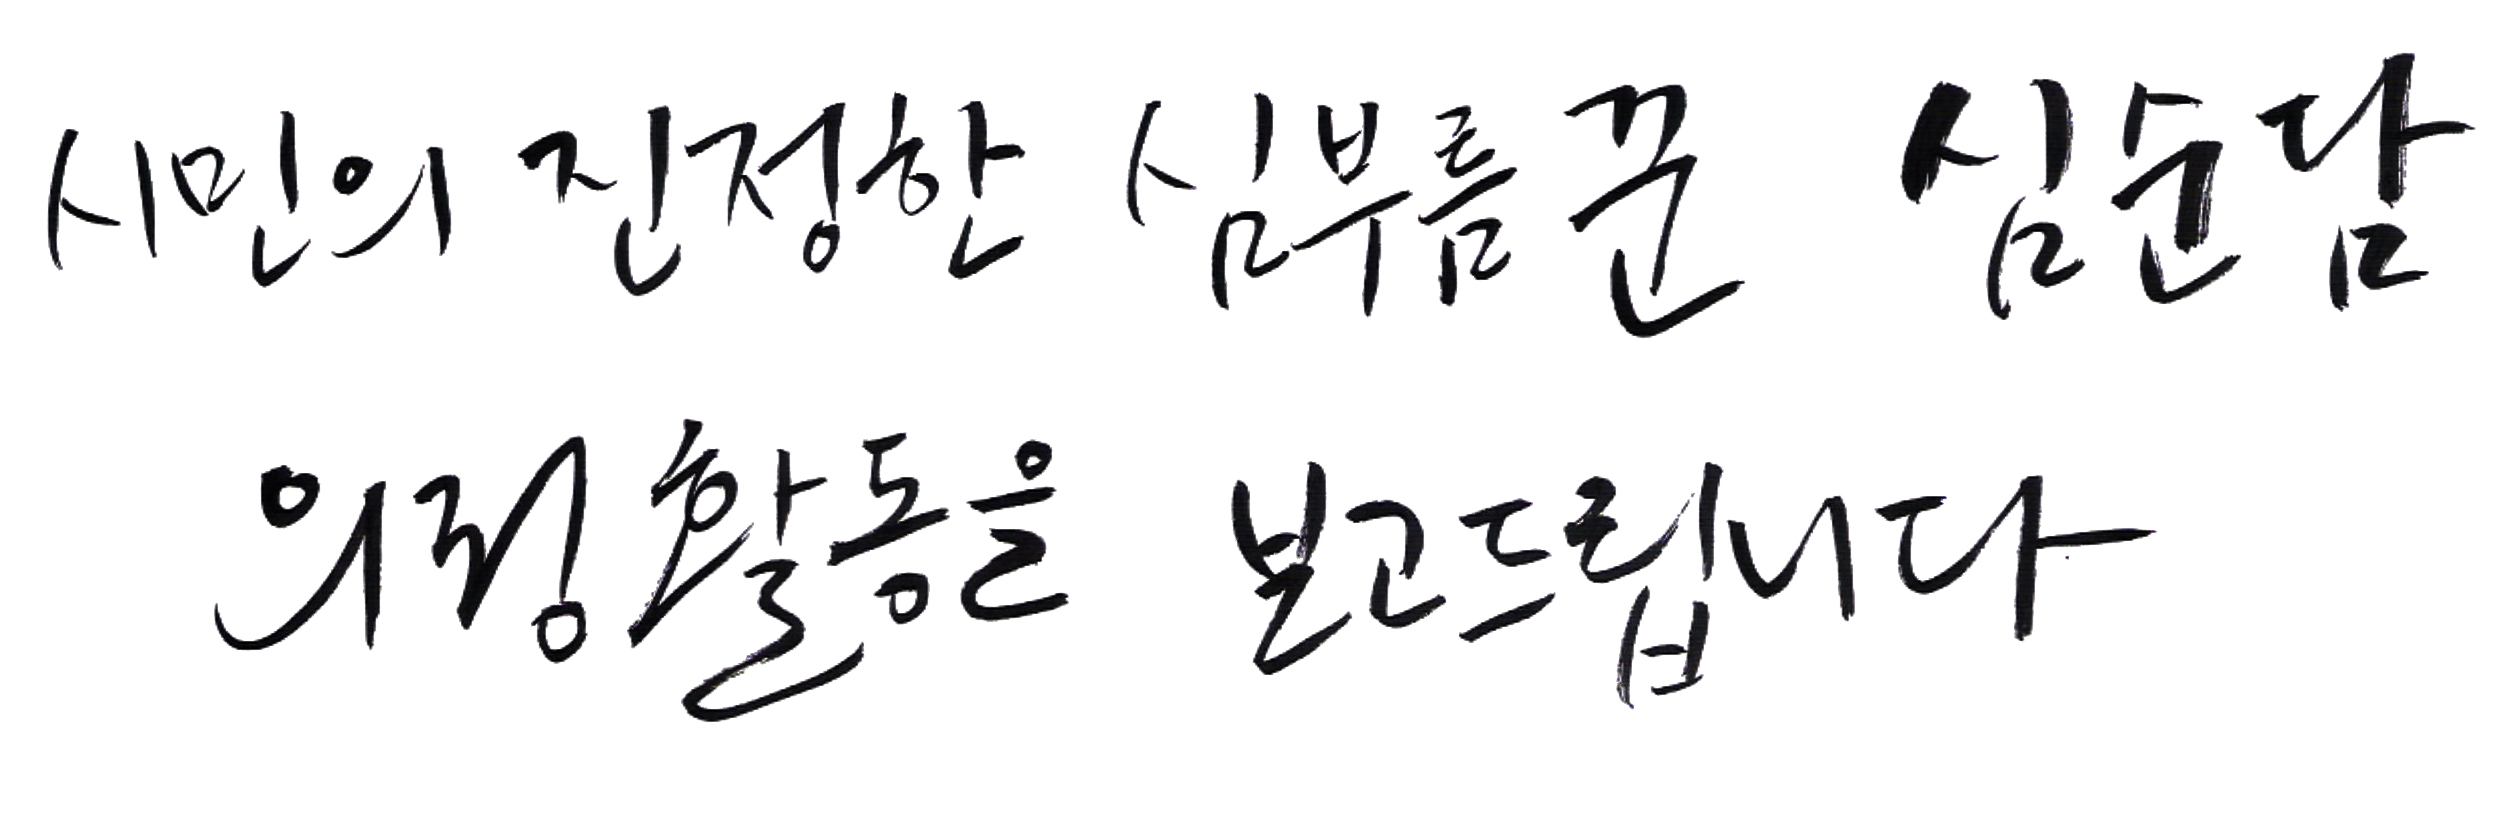 시민의 진정한 심부름꾼
의정활동을 보고드립니다